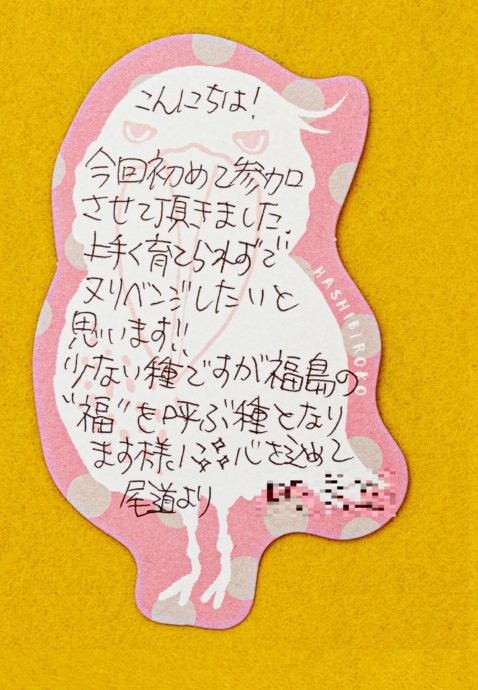 こんにちは!
今回初めて参加
させて頂きました.
上手く育てられずで
又リベンジしたいと
思います!!
少ない種ですが福島の
"福"を呼ぶ種となり
ます様に心を込めて
尾道より
HASHIBIROKO